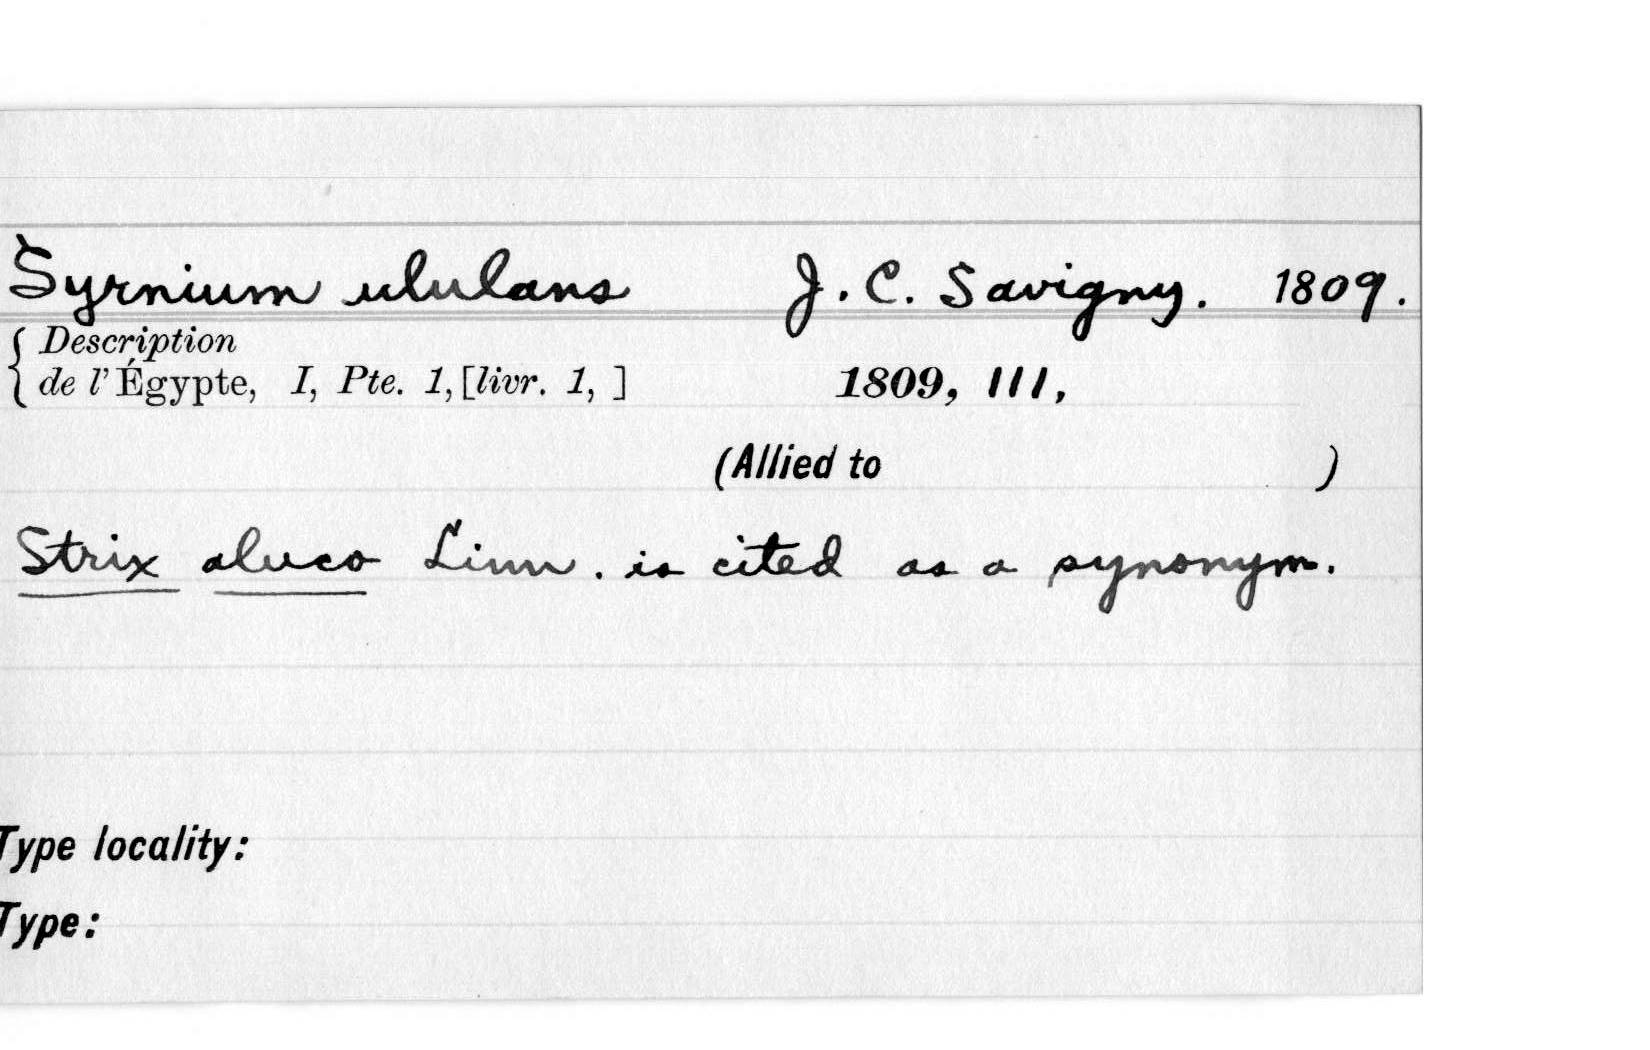 Syrnium ululans J. C. Savigny. 1809.
{ Description
de l'Égypte, I, Pte. 1, [livr. 1, ] 1809, III,
(Allied to )
Strix aluco Linn. is cited as a synonym.
Type locality:
Type: